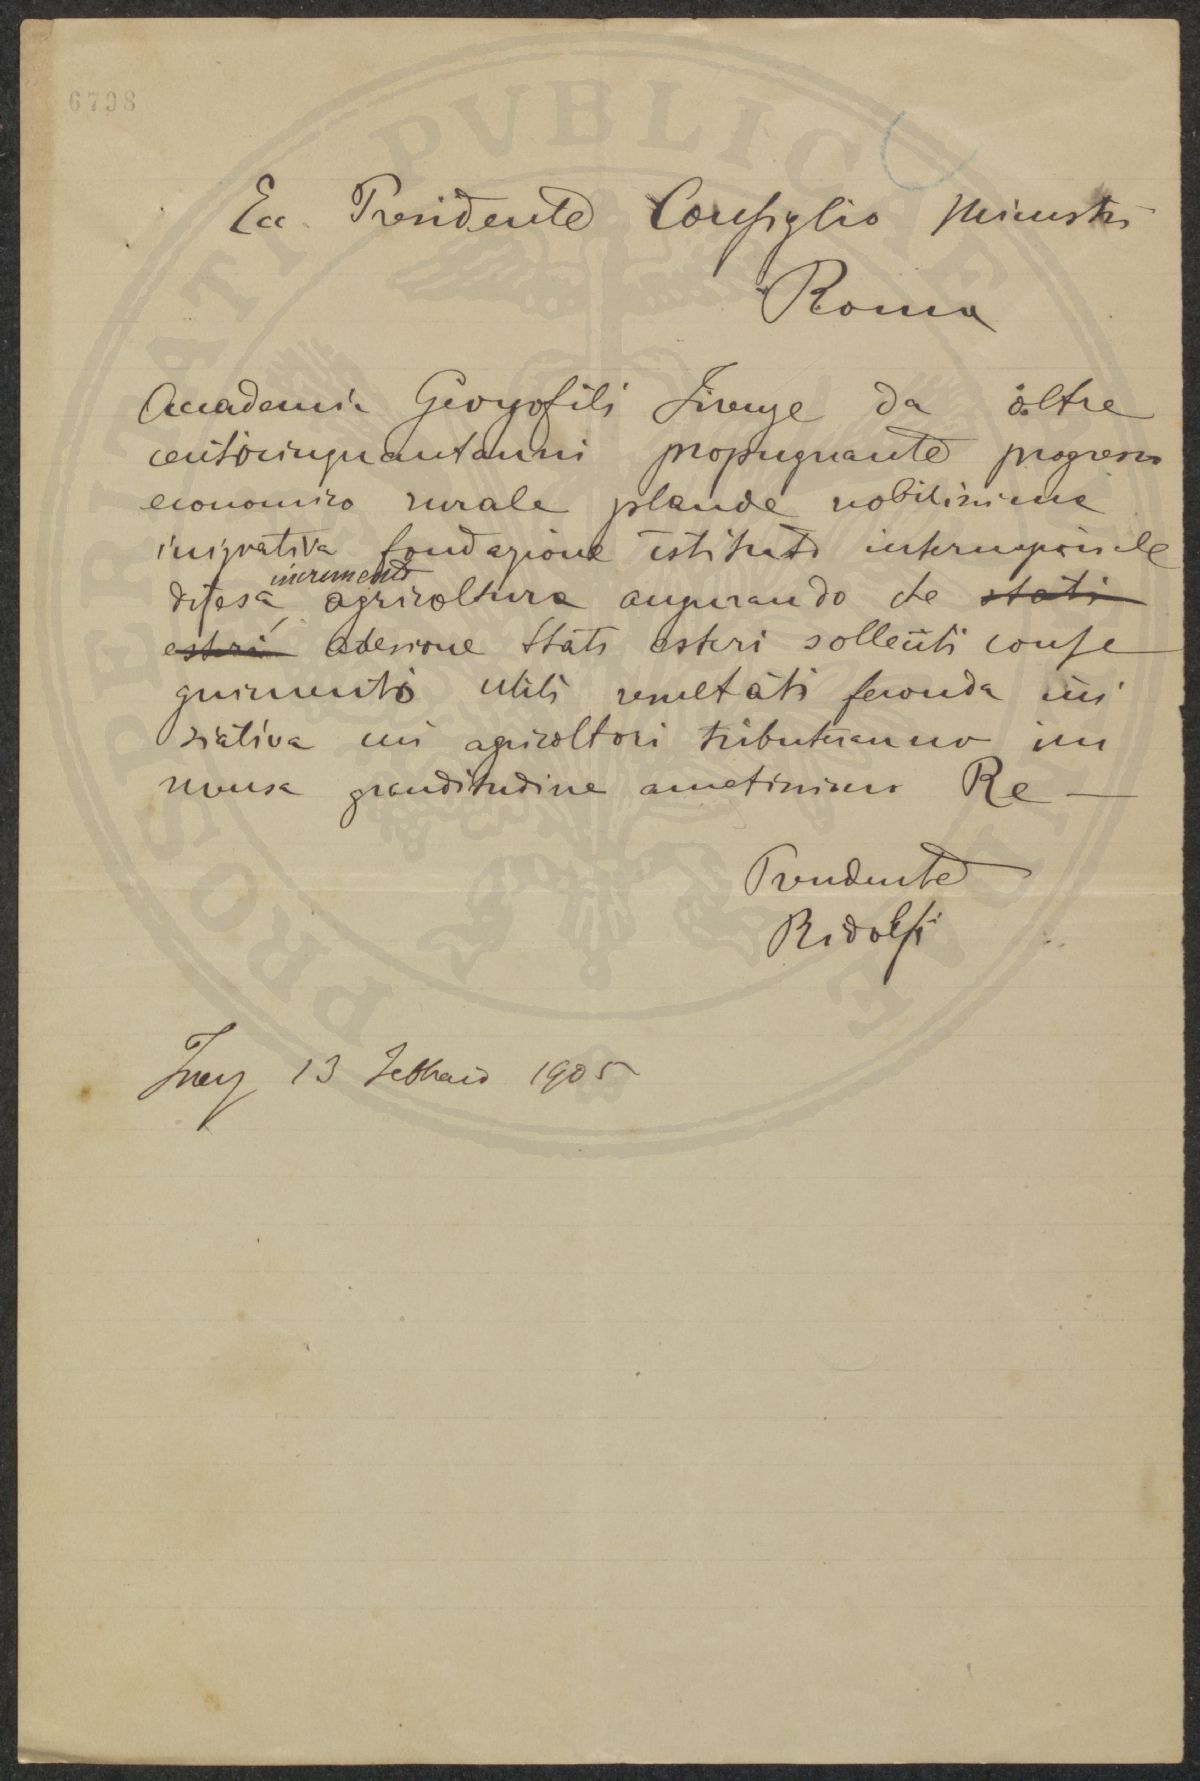 6798
Ecc. Presidente Consiglio Ministri
Roma
Accademia Georgofili Firenze da oltre
centocinquantanni propugnante progresso
economico rurale plaude nobilissima
iniziativa fondazione istituto internazionale
difesa incremento agricoltura augurando che stati
esteri adesione Stati esteri solleciti conse
guimento utili resultati feconda ini
ziativa cui agricoltori tributeranno im
mensa granditudine amatissimo Re —
Presidente
Ridolfi
13 Febbraio 1905
PROSPERITATI PVBLICAE AVGENDAE